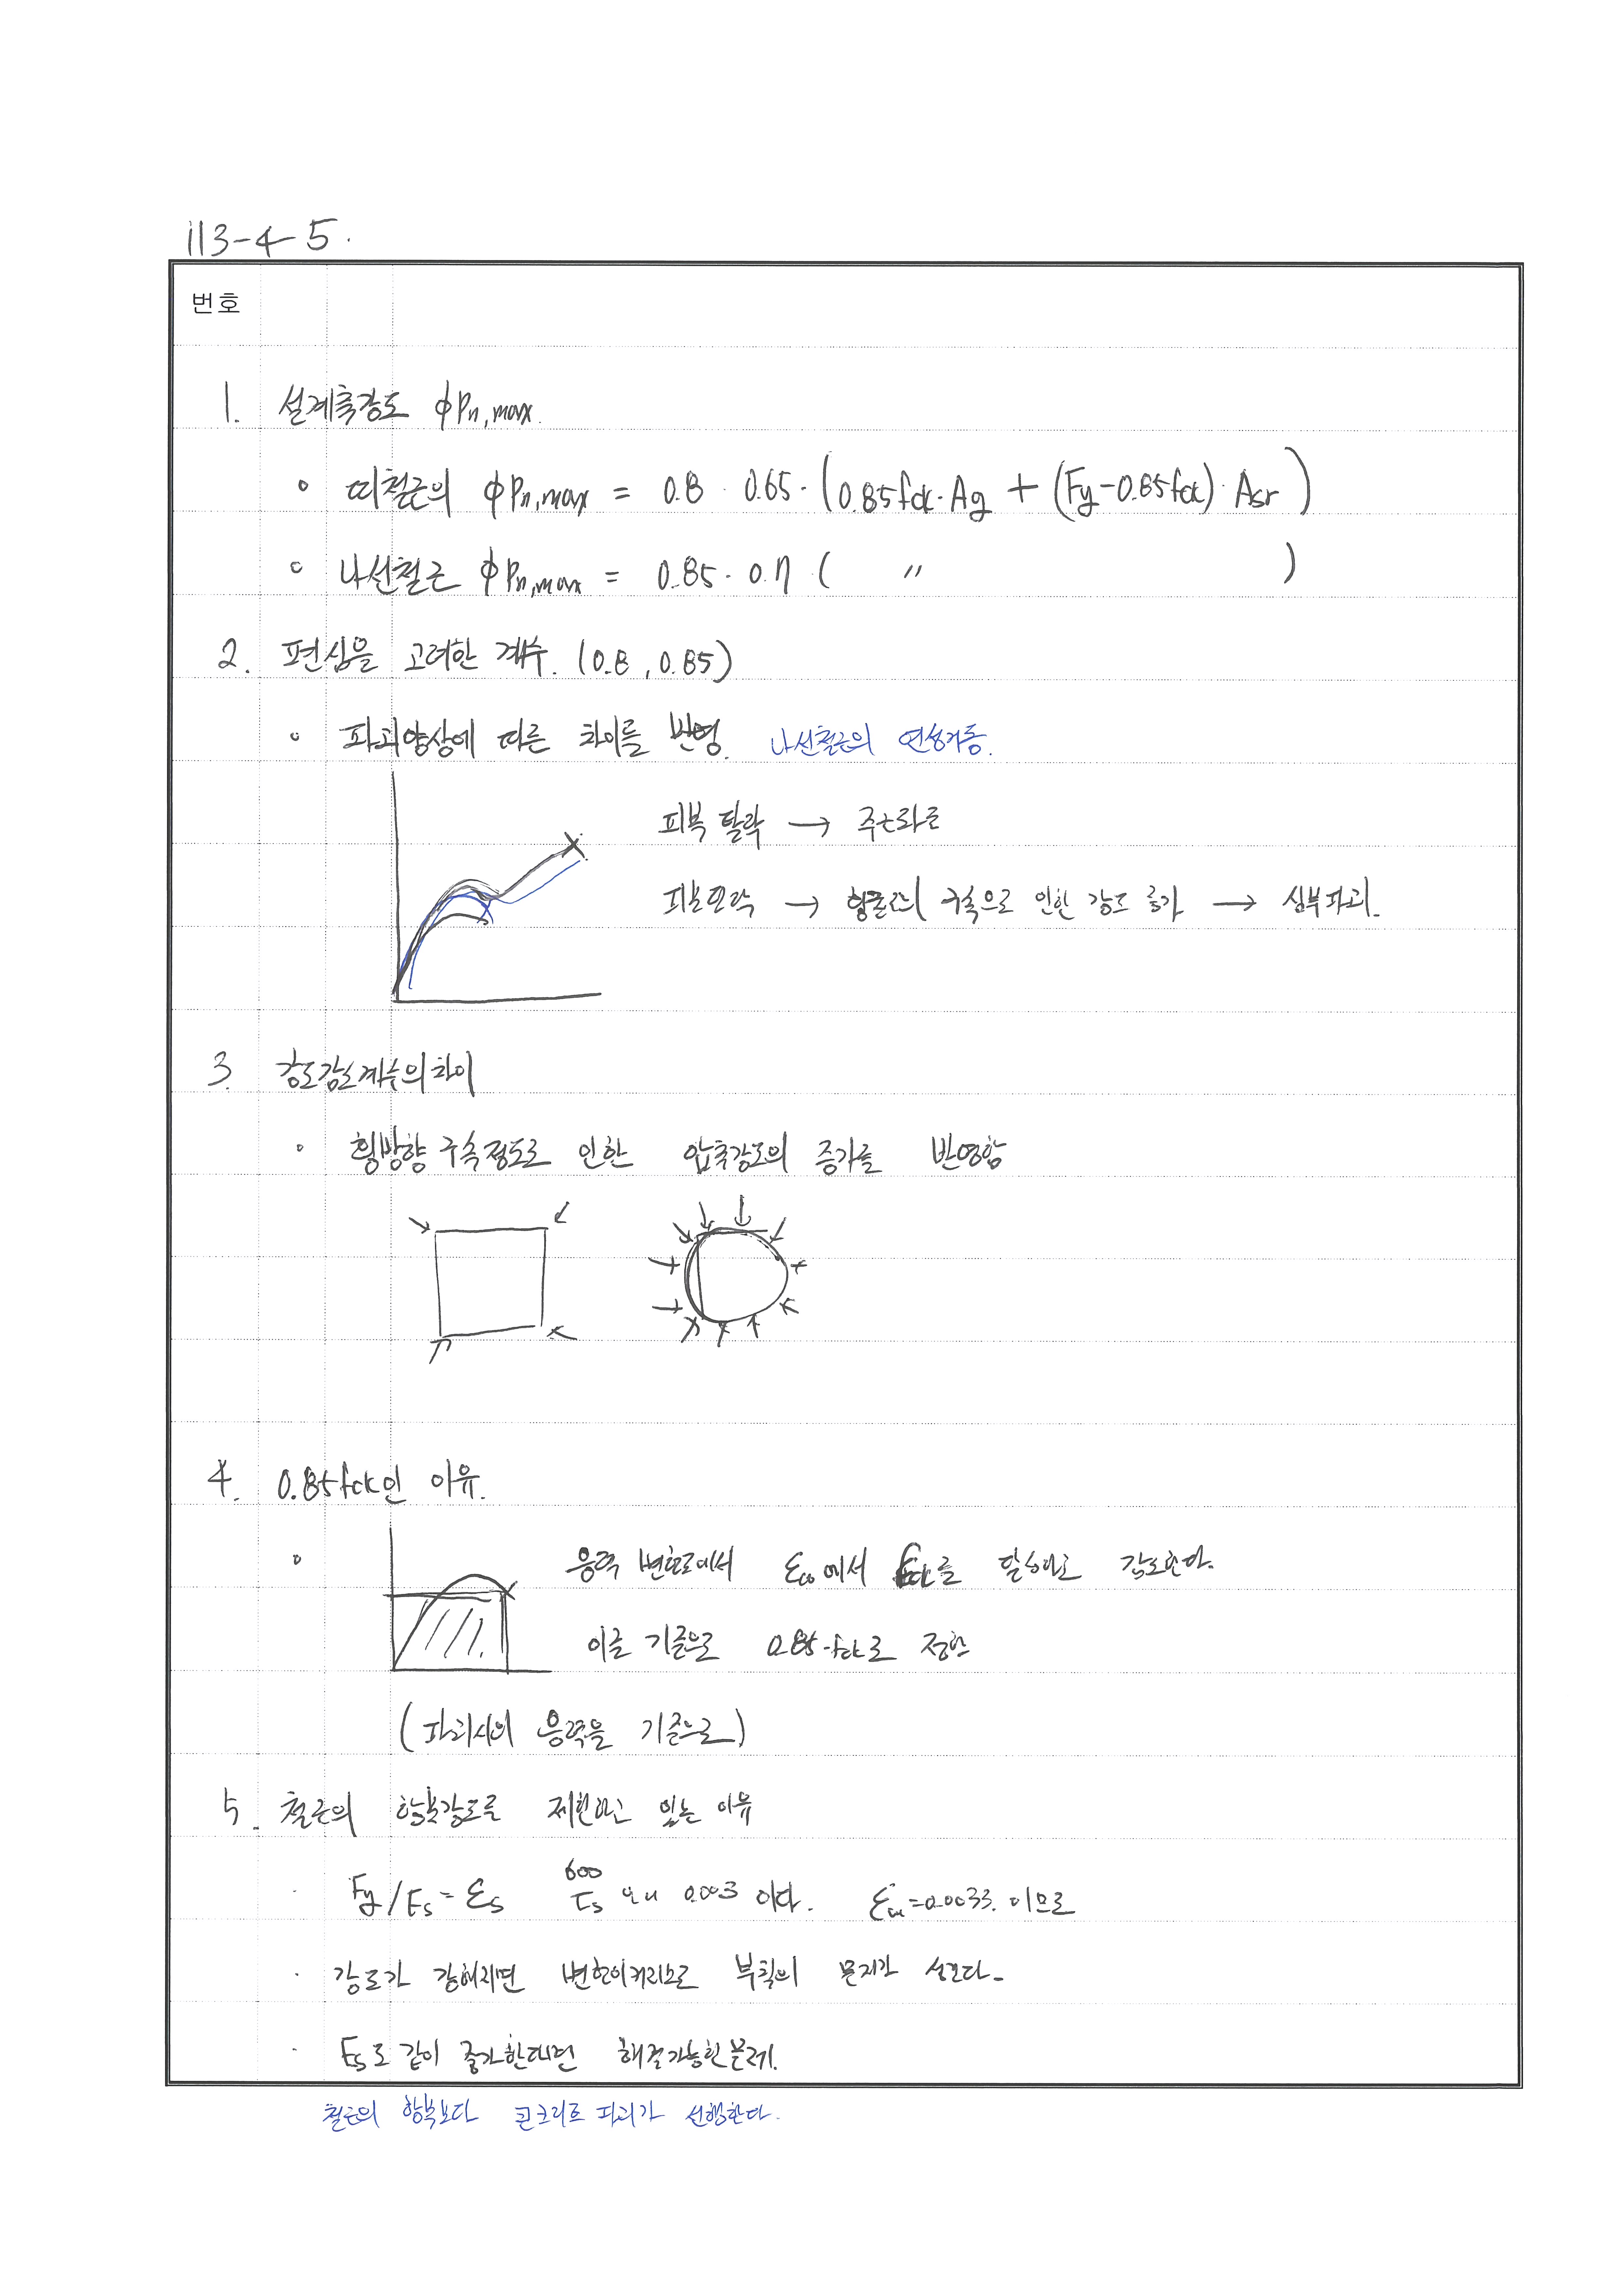 113-4-5.
번호
1. 설계축강도 ϕPn,max.
∘ 띠철근의 ϕPn,max = 0.8 · 0.65 · (0.85fck·Ag + (Fy-0.85fck)·Asr)
∘ 나선철근 ϕPn,max = 0.85 · 0.7 ( 〃 )
2. 편심을 고려한 계수. (0.8, 0.85)
∘ 파괴양상에 따른 차이를 반영. 나선철근의 연성거동.
피복 탈락 → 주근좌굴
피복탈락 → 횡철근의 구속으로 인한 강도 증가 → 심부파괴.
3. 강도감소계수의 차이
∘ 횡방향 구속정도로 인한 압축강도의 증가를 반영함
4. 0.85fck인 이유.
∘ 응력 변형도에서 εco에서 fck를 달성하고 감소한다.
이를 기준으로 0.85·fck로 정함
(파괴시의 응력을 기준으로)
5. 철근의 항복강도를 제한하고 있는 이유
· Fy/Es = εs 600/Es 0.003 이다. εcu=0.0033. 이므로
· 강도가 강해지면 변형이커지므로 부착의 문제가 생긴다.
· Es도 같이 증가한다면 해결가능한문제.
철근의 항복보다 콘크리트 파괴가 선행한다.